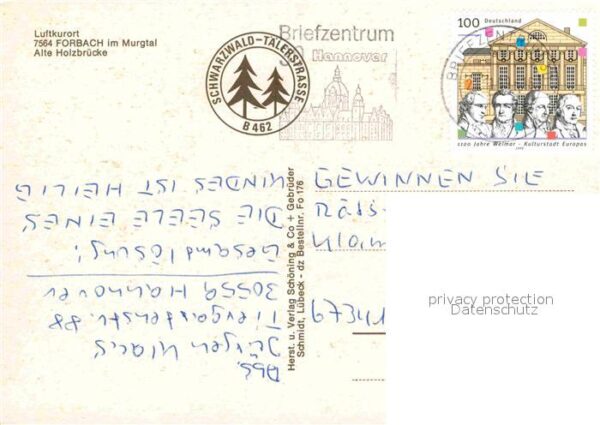 Luftkurort
7564 FORBACH im Murgtal
Alte Holzbrücke
SCHWARZWALD-TÄLERSTRASSE
B 462
Briefzentrum
Hannover
BRIEFZEN
100 Deutschland
1100 Jahre Weimar - Kulturstadt Europas
1999
GEWINNEN SIE
Rätsel
67341
Abs.
Jürgen
Tiergartenstr. 88
30559 Hannover
Gesamtlösung:
DIE SEELE EINES
KINDES IST HEILIG
Herst. u. Verlag Schöning & Co + Gebrüder
Schmidt, Lübeck - dz Bestellnr. Fo 176
privacy protection
Datenschutz